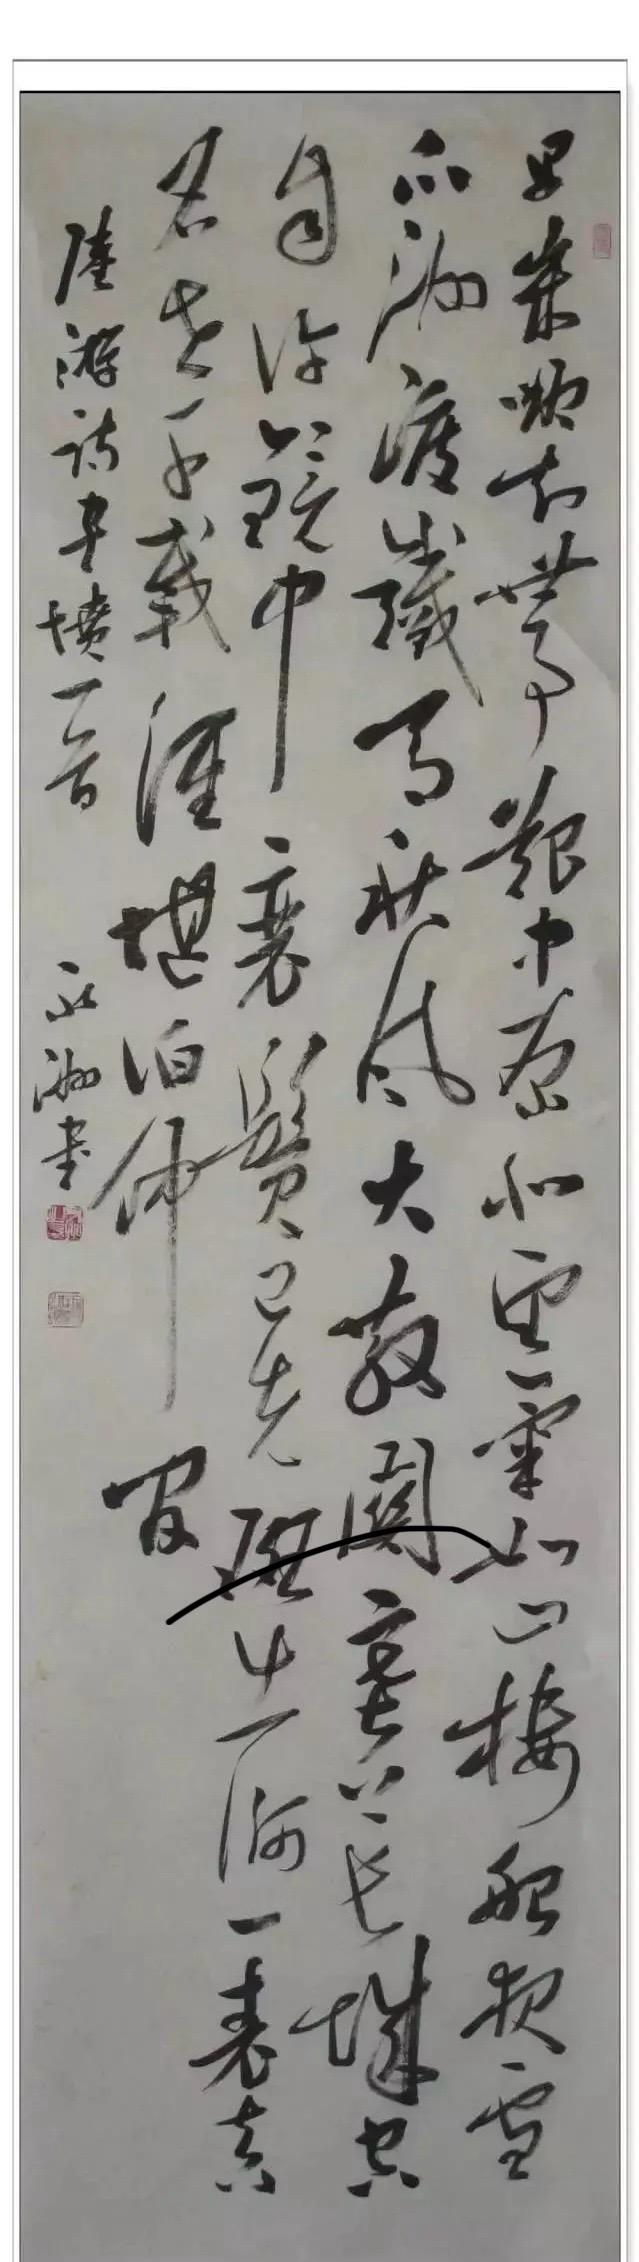 早歲哪知世事艱中原北望氣如山樓船夜雪
瓜洲渡鐵馬秋風大散關塞上長城空
自許鏡中衰鬢已先斑出師一表真
名世千載誰堪伯仲間
陸游詩書憤一首 永洲書